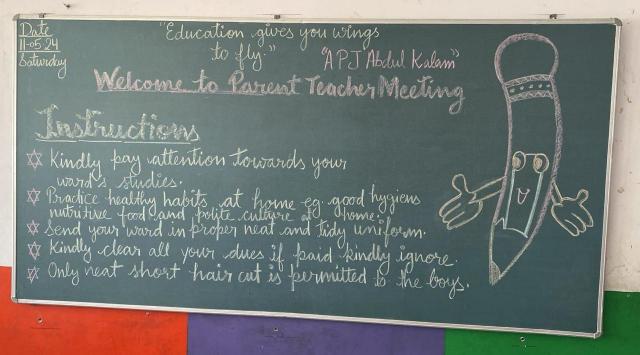 Date
11-05-24
Saturday
"Education gives you wings
to fly."
"APJ Abdul Kalam"
Welcome to Parent Teacher Meeting
Instructions
Kindly pay attention towards your
ward's studies.
Practice healthy habits at home eg. good hygiens
nutritive food and polite culture at home.
Send your ward in proper neat and tidy uniform.
Kindly clear all your dues if paid kindly ignore.
Only neat short hair cut is permitted to the boys.